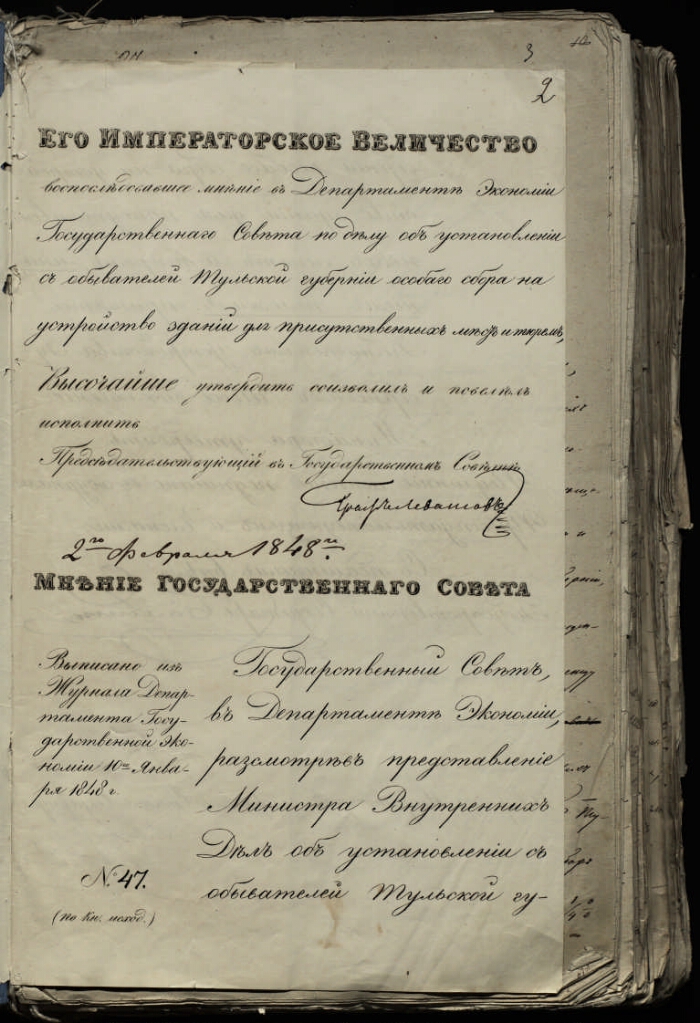 3
2
Его Императорское Величество
воспослѣдовавшее мнѣніе въ Департаментѣ Экономіи
Государственнаго Совѣта по дѣлу объ установленіи
съ обывателей Тульской губерніи особаго сбора на
устройство зданій для присутственныхъ мѣстъ и тюремъ,
Высочайше утвердить соизволилъ и повелѣлъ
исполнить
Предсѣдательствующій въ Государственномъ Совѣтѣ
Графъ Левашовъ
2го Февраля 1848 г.
Мнѣніе Государственнаго Совѣта
Выписано изъ
Журнала Депар-
тамента Госу-
дарственной Эко-
номіи 10го Янва-
ря 1848 г.
№ 47.
(по кн. исход.)
Государственный Совѣтъ,
въ Департаментѣ Экономіи,
разсмотрѣвъ представленіе
Министра Внутреннихъ
Дѣлъ объ установленіи съ
обывателей Тульской гу-